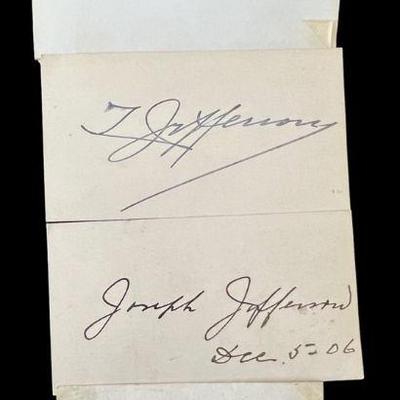 T Jefferson
Joseph Jefferson
Dec. 5-06